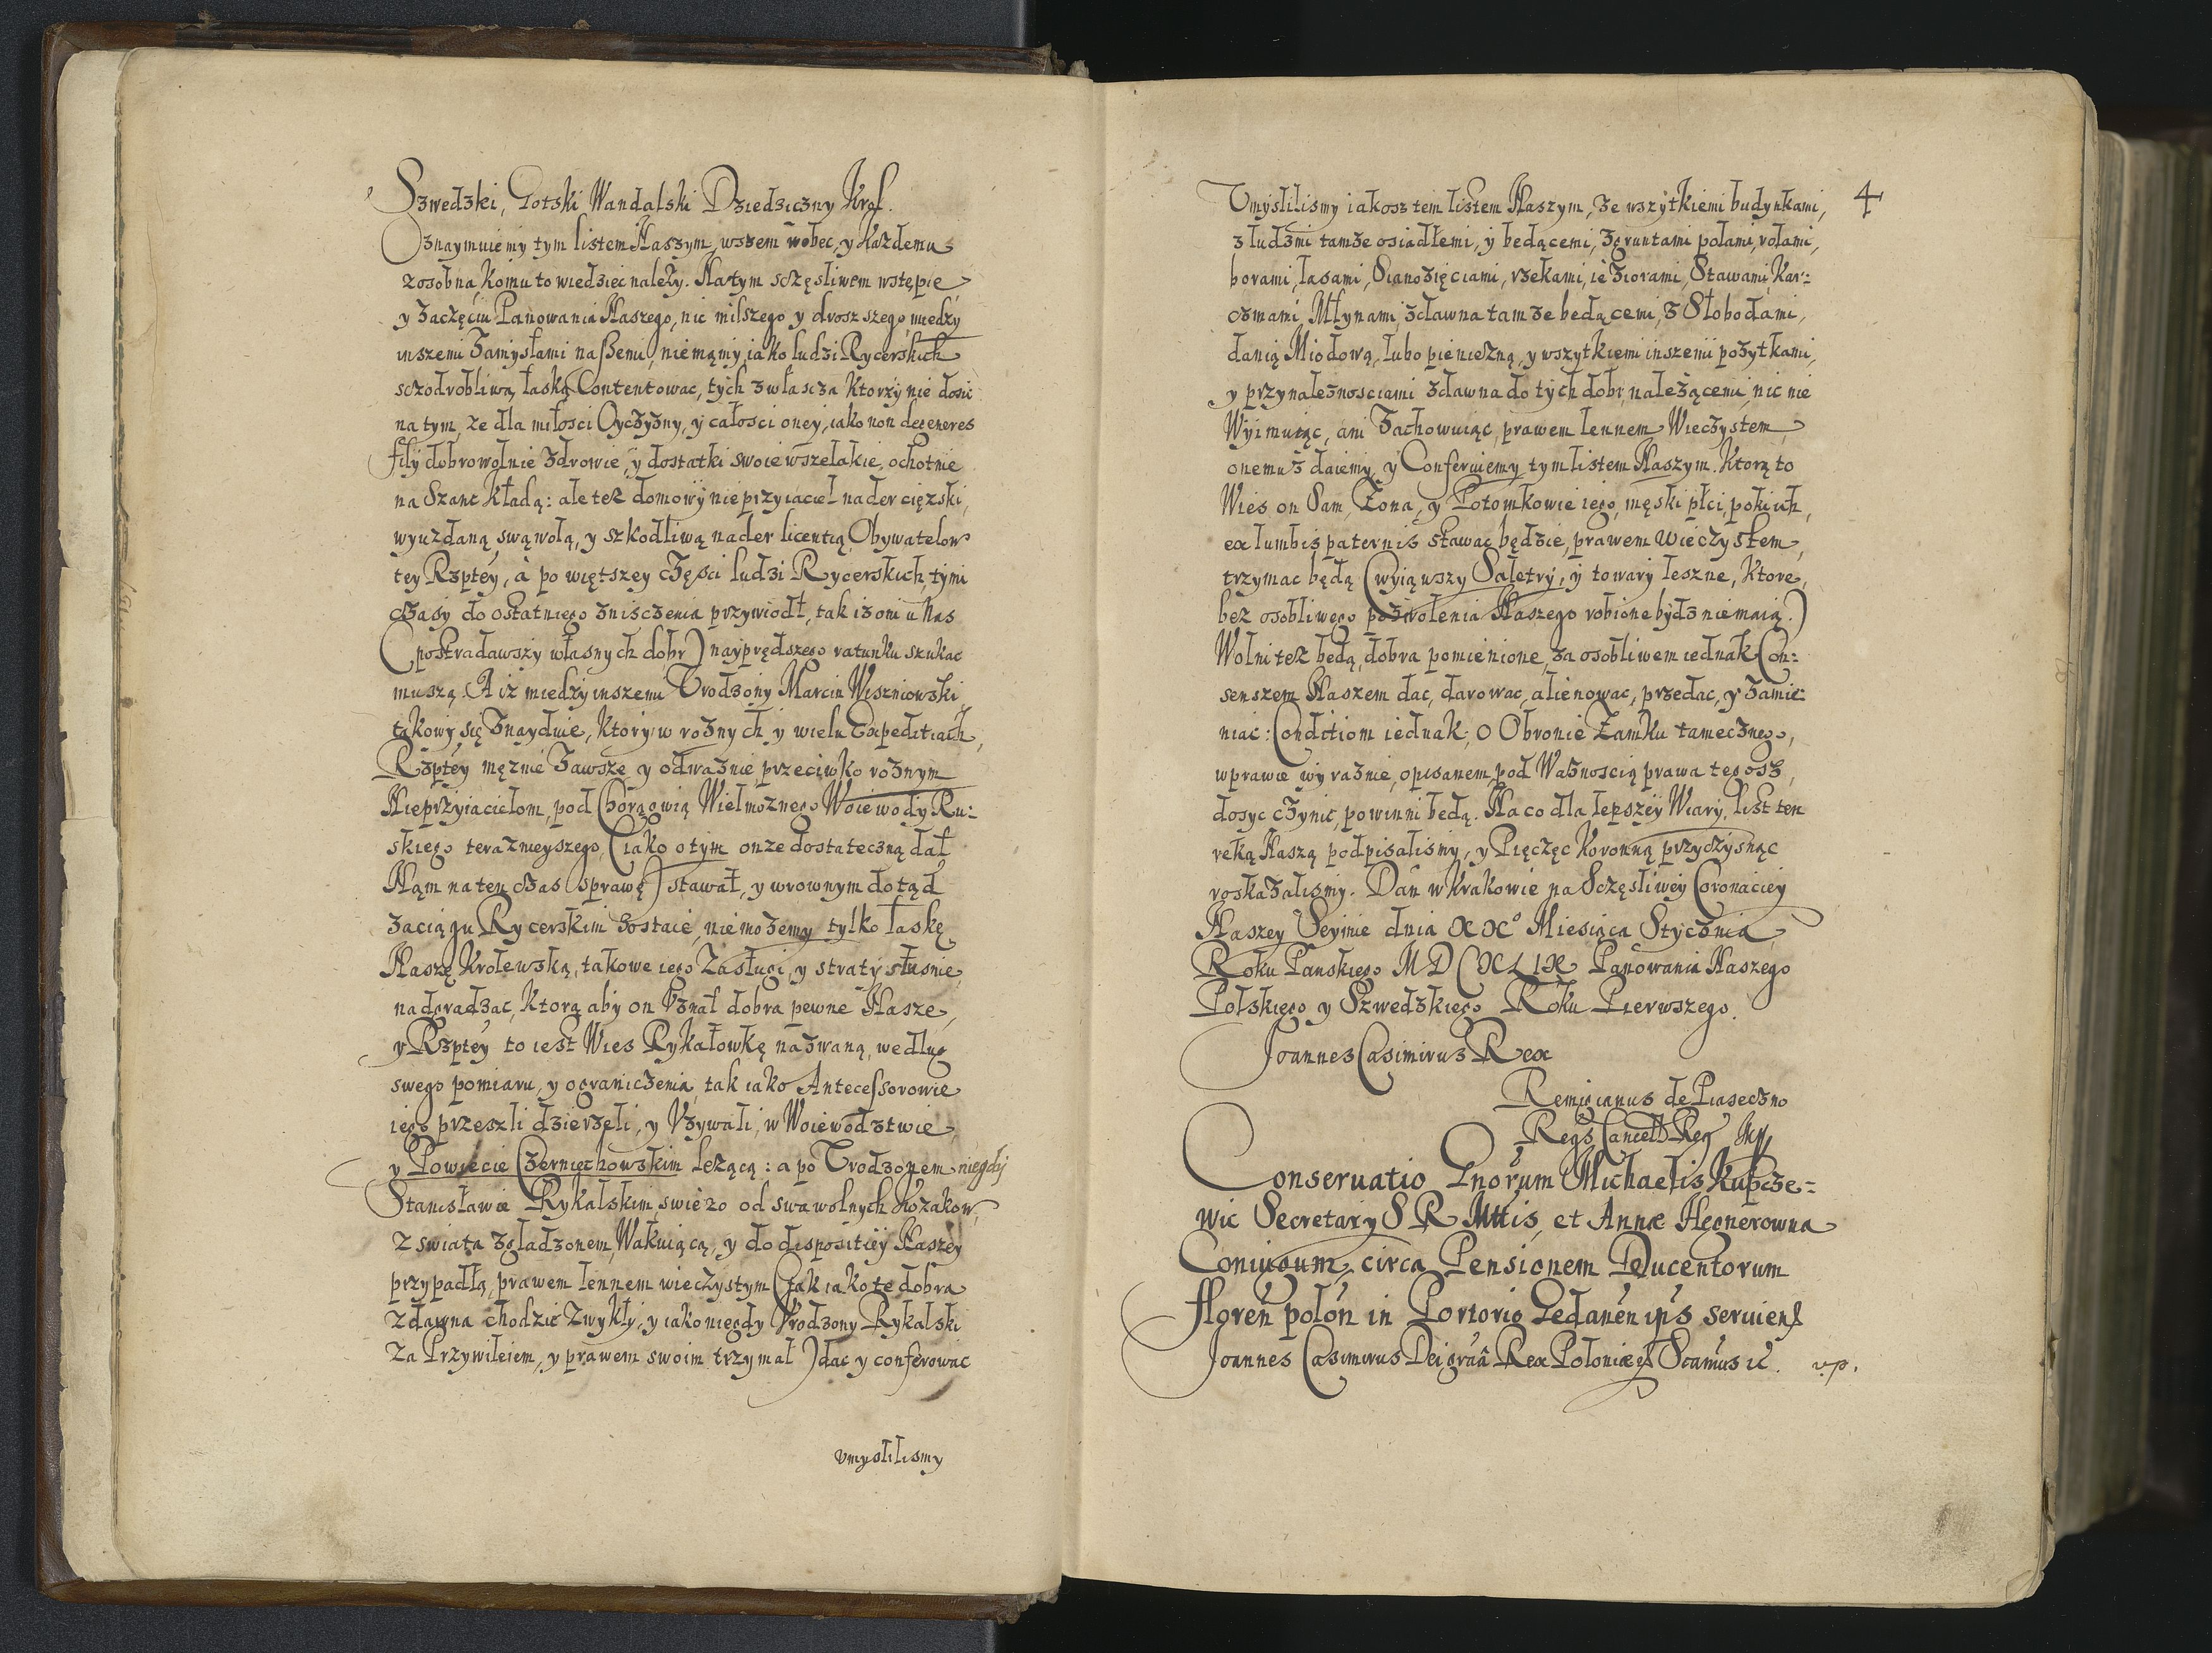 Szwedzki, Gotski Wandalski Dziedziczny Krol.
Oznaymuiemy tym listem Naszym, wszem wobec, y Kazdemu
zosobna, komu to wiedziec nalezy. Na tym sczęsliwem wstępie
y Zaczęciu Panowania Naszego, nic milszego y droszszego, miedzy
inszemi Zamysłami naszemi, niemąmy, iako ludzi Rycerskich
sczodrobliwą łaską Contentowac, tych zwłascza Ktorzy nie dosic
na tym, ze dla miłosci Oyczyzny, y całosci oney, iako non degeneres
filÿ dobrowolnie zdrowie, y dostatki swoie wszelakie, ochotnie
na Szanc Kładą: ale tez domowÿ nieprzyiaciel nader cięzski,
wyuzdaną swąwolą, y szkodliwą nader licentią, Obywatelow
tey Rzptey, à po więtszey Częsci ludzi Rycerskich, tymi
czasy do ostatniego znisczenia przywiodł, tak iz oni u Nas
(postradawszy własnych dobr) nayprędszego ratunku szukac
muszą. A iz miedzy inszemi Vrodzony Marcin Wiszniowski
takowy się Znayduie, ktory w roznych y wielu Expeditiach,
Rzptey męznie Zawsze y odwaznie przeciwko roznym
Nieprzyiacielom, pod Chorągwią Wielmoznego Woiewody Ru:
skiego teraznieyszego, (iako o tym onze dostateczną dał
Nąm na ten czas sprawę) stawał, y wrownym dotąd
zaciągu Rycerskim zostaie, niemozemy tylko łaskę
Naszę Krolewską, takowe iego Zasługi, y straty słusnie
nadgradzac, Ktorą aby on Vznał dobra pewne Nasze,
y Rzptey to iest Wies Rykałowkę nazwaną, wedlug
swego pomiaru, y ograniczenia, tak iako Antecessorowie
iego przeszli dzierzeli, y Vzywali, w Woiewodztwie,
y Powiecie Czerniechowskim lezącą: a po Vrodzonem niegdÿ
Stanisławie Rykalskim swiezo od swawolnych Kozakow,
z swiata zgładzonem, Wakuiącą, y do dispositiey Naszey
przypadłą, prawem lennem wieczystym (tak iako te dobra
zdawna chodzic zwykły, y iako niegdy Vrodzony Rykalski
za Przywileiem, y prawem swoim trzymał) dac y conferowac
vmyslilismy
4
Vmyslilismy iakosz tem listem Naszym, ze wszytkiemi budynkami,
z ludzmi tamze osiadłemi, y bedącemi, z gruntami polami, rolami,
borami, lasami, Sianozięciami, rzekami, ieziorami, Stawami, Kar:
czmami, Młynami, zdawna tamze bedącemi, z Słobodami,
danią Miodową, lubo pieniezną, y wszytkiemi inszemi pozytkami,
y przynaleznosciami zdawna do tych dobr, nalezącemi, nic nie
Wyimuiąc, ani Zachowuiąc, prawem lennem Wieczystem,
onemuz daiemy, y Conferuiemy tym listem Naszym. Ktorą to
Wies on Sam, Zona, y Potomkowie iego, męski płci, pokich,
ex lumbis paternis stawac będzie, prawem wieczystem,
trzymac będą (wyiąwszy Saletry, y towary leszne, Ktore,
bez osobliwego pozwolenia Naszego robione bydz niemaią.)
Wolni tez bedą, dobra pomienione, za osobliwem iednak Con:
senszem Naszem dac, darowac, alienowac, przedac, y zamie:
niac: Conditiom iednak, o Obronie Zamku tamecznego,
w prawie wyraznie, opisanem, pod Waznoscią prawa tegosz,
dosyc czynic, powinni bedą. Na co dla lepszey Wiary, list ten
reką Naszą podpisalismy, y Pięczęc Koronną przyczysnąc
roskazalismy. Dan w Krakowie na Sczęsliwey Coronaciey
Naszey Seymie dnia XX° Miesiąca Stycznia,
Roku Panskiego MDCXLIX Panowania Naszego
Polskiego y Szwedzkiego Roku Pierwszego.
Joannes Casimirus Rex
Remigianus de Piaseczno
Regs Cancell Reg Mp
Conseruatio Gnorum Michaelis Kupcze:
wic Secretarÿ S R Mttis, et Annæ Hegnerowna
Coniugum, circa Pensionem Ducentorum
floren polon in Portorio Gedanen ips seruien
Joannes Casimirus Dei graa Rex Poloniæ et Scamus ic. v.p.